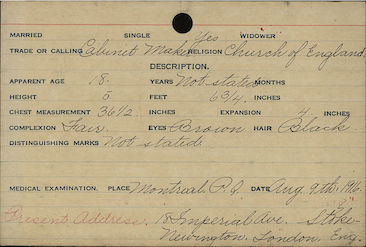 MARRIED SINGLE Yes WIDOWER
TRADE OR CALLING Cabinet Maker RELIGION Church of England
DESCRIPTION.
APPARENT AGE 18. YEARS Not stated MONTHS
HEIGHT 5 FEET 6 3/4 INCHES
CHEST MEASUREMENT 36 1/2 INCHES EXPANSION 4 INCHES
COMPLEXION Fair. EYES Brown HAIR Black.
DISTINGUISHING MARKS Not stated
MEDICAL EXAMINATION. PLACE Montreal P.Q. DATE Aug. 9th. 1916.
Present Address. 18 Imperial Ave. Stoke-
Newington, London, Eng.